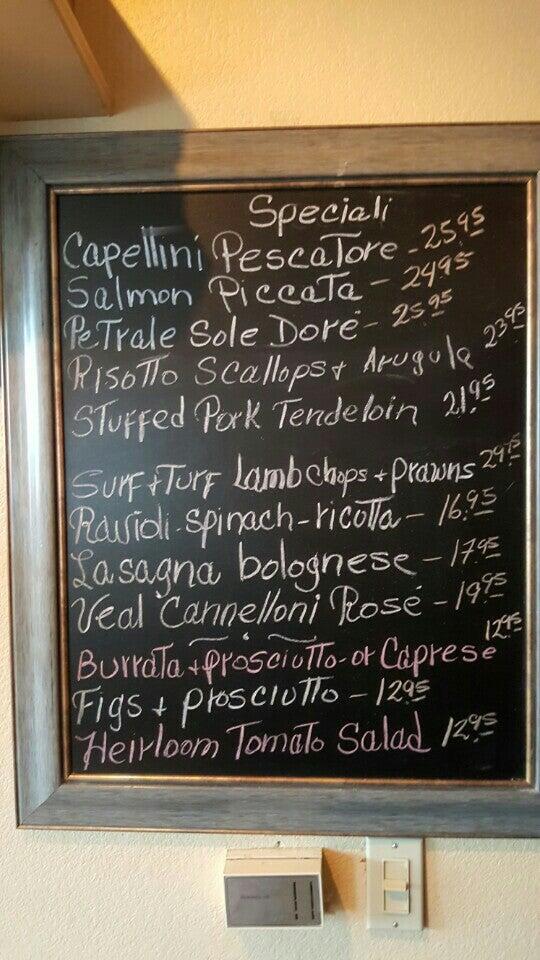 Speciali
Capellini Pescatore - 25.95
Salmon Piccata - 24.95
Petrale Sole Doré - 25.95
Risotto Scallops + Arugula 23.95
Stuffed Pork Tendeloin 21.95
Surf + Turf Lamb chops + prawns 29.95
Ravioli - spinach - ricotta - 16.95
Lasagna bolognese - 17.95
Veal Cannelloni Rosé - 19.95
Burrata + prosciutto - or Caprese 12.95
Figs + prosciutto - 12.95
Heirloom Tomato Salad 12.95